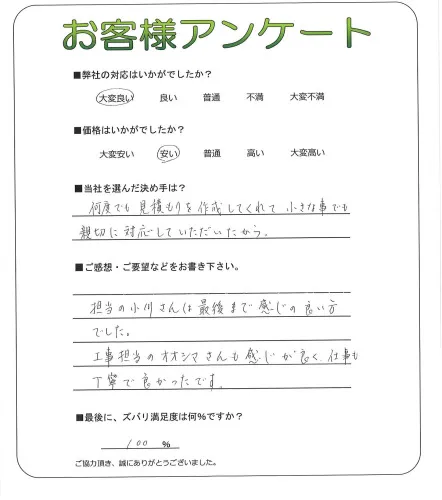 お客様アンケート
■弊社の対応はいかがでしたか？
大変良い 良い 普通 不満 大変不満
■価格はいかがでしたか？
大変安い 安い 普通 高い 大変高い
■当社を選んだ決め手は？
何度でも見積もりを作成してくれて小さな事でも
親切に対応していただいたから。
■ご感想・ご要望などをお書き下さい。
担当の小川さんは最後まで感じの良い方
でした。
工事担当のオオシマさんも感じが良く、仕事も
丁寧で良かったです。
■最後に、ズバリ満足度は何％ですか？
100 %
ご協力頂き、誠にありがとうございました。